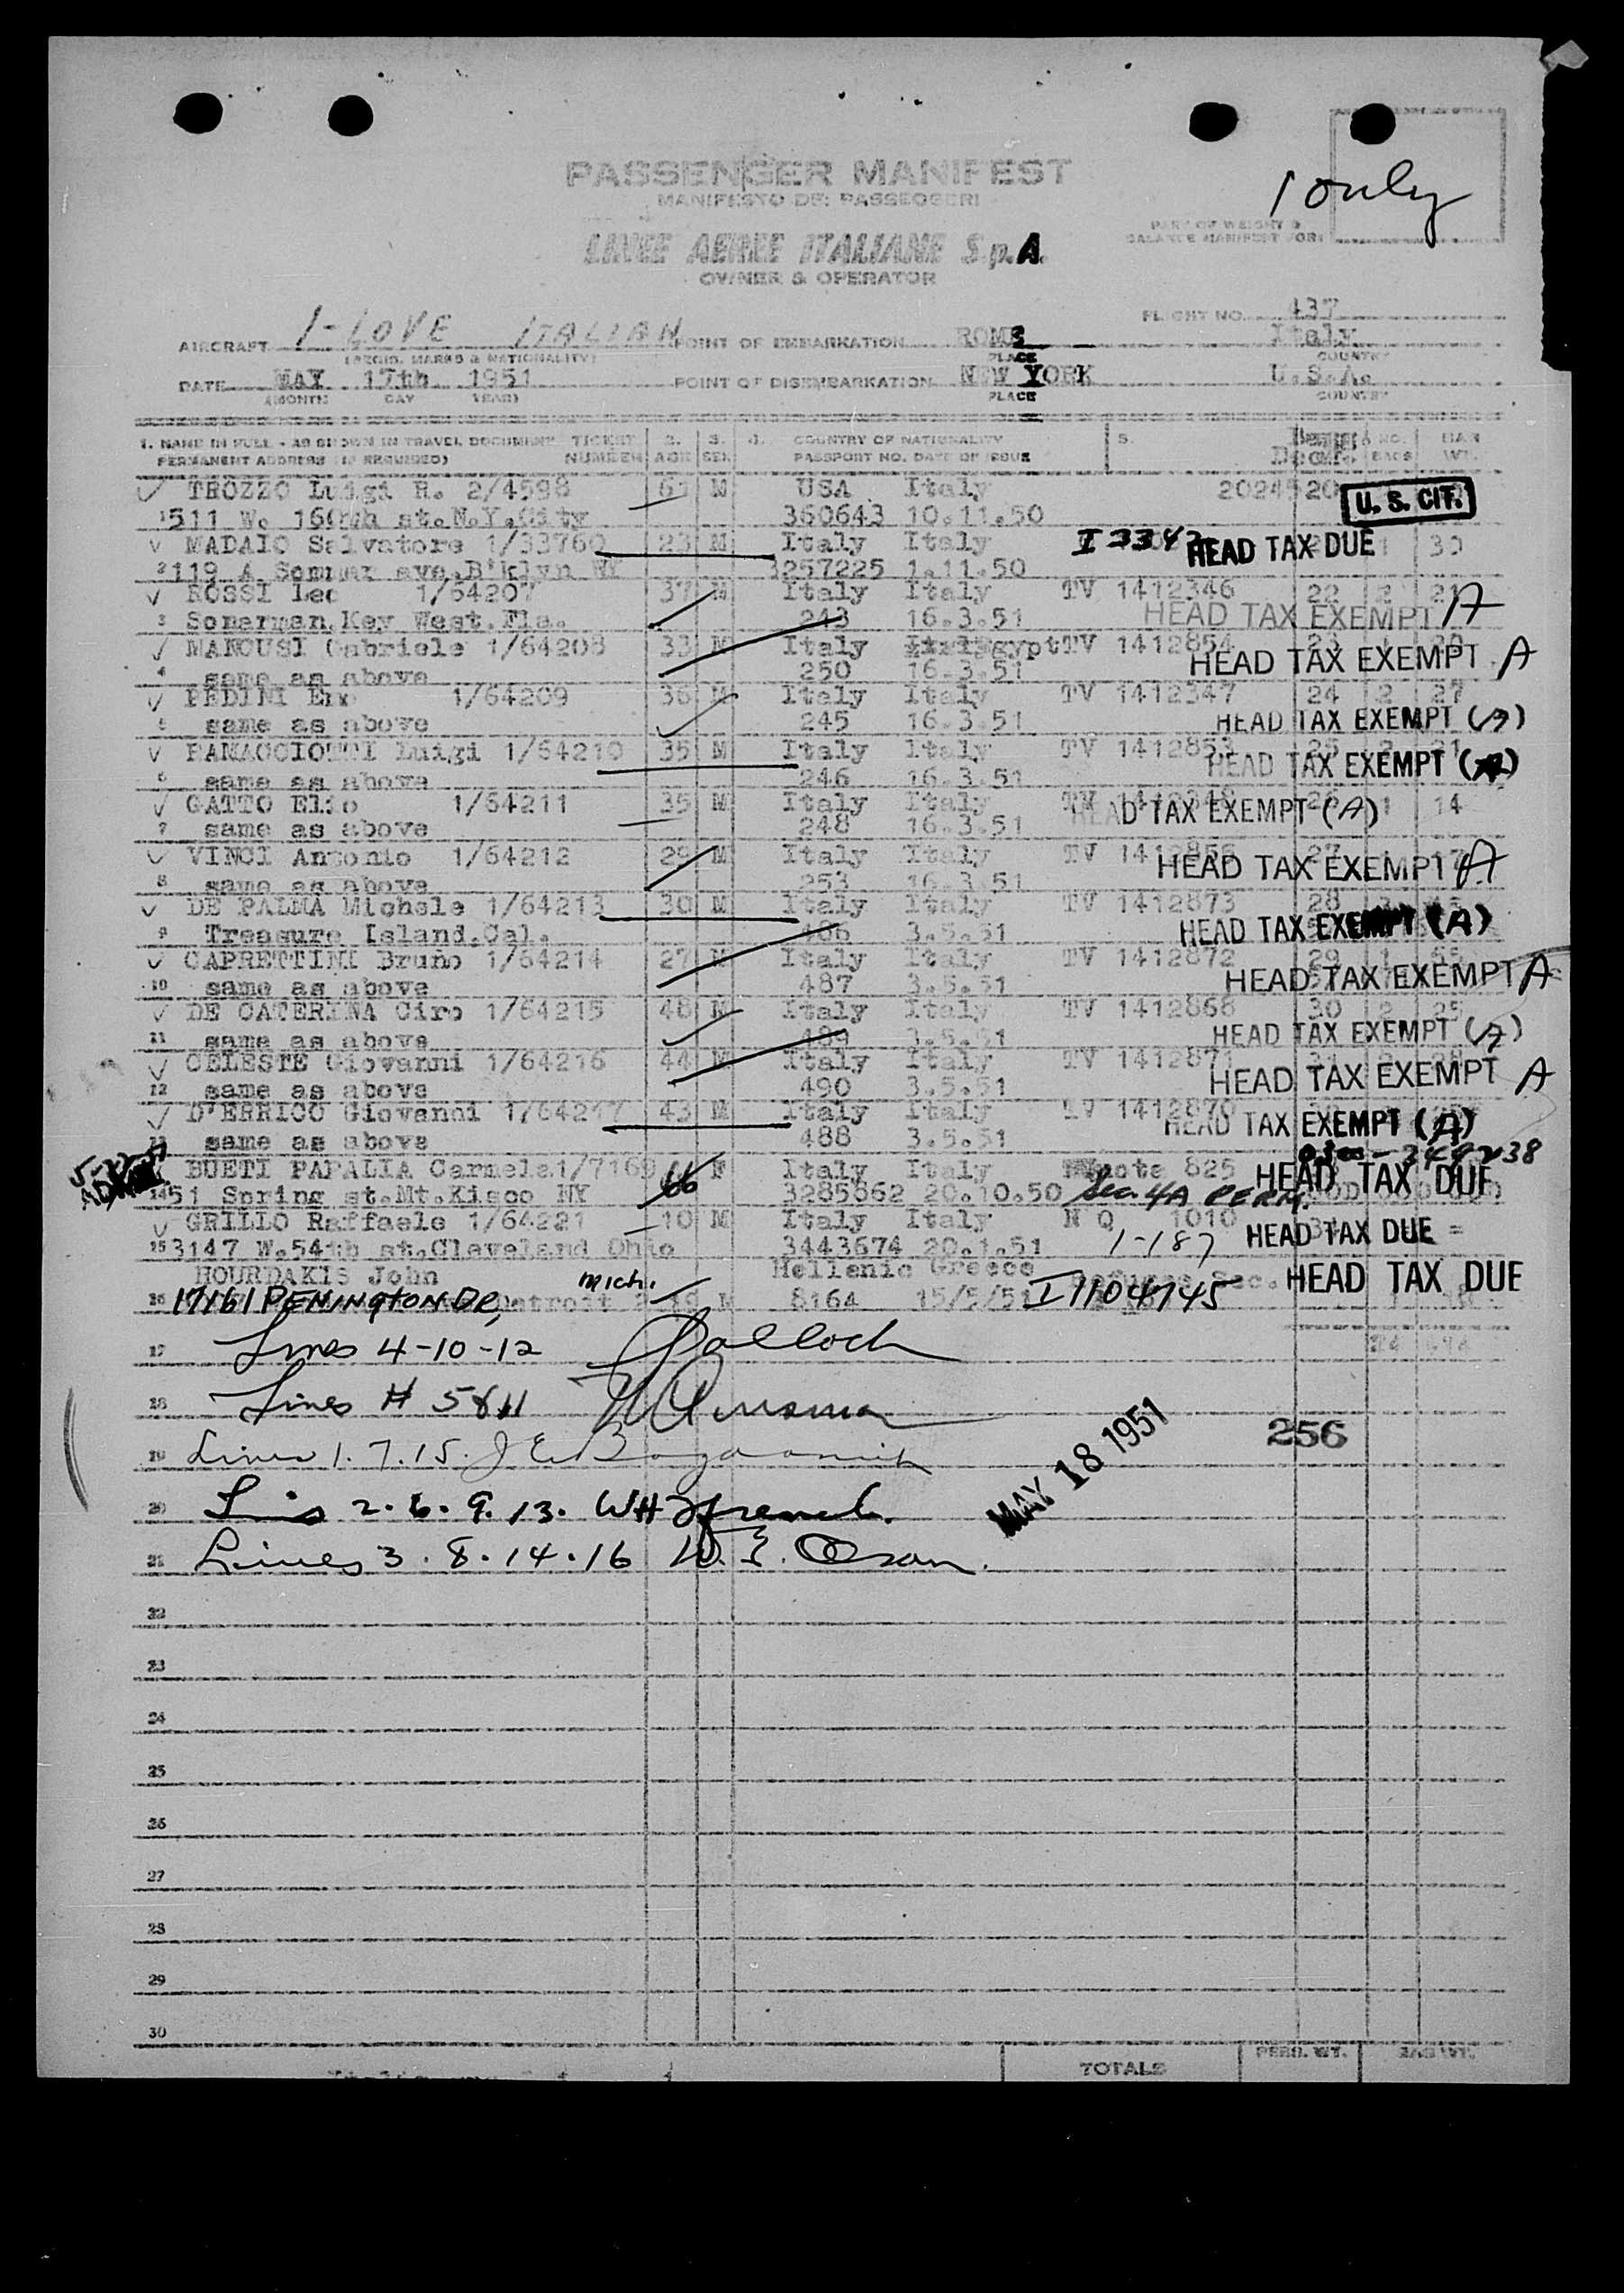 1 only
PASSENGER MANIFEST
MANIFESTO DEI PASSEGGERI
PART OF WEIGHT &
BALANCE MANIFEST FOR:
LINEE AEREE ITALIANE S.p.A.
OWNER & OPERATOR
FLIGHT NO. 437
AIRCRAFT I-LOVE ITALIAN POINT OF EMBARKATION ROME Italy
(REGIS. MARKS & NATIONALITY) PLACE COUNTRY
DATE MAY 17th 1951 POINT OF DISEMBARKATION NEW YORK U.S.A.
(MONTH DAY YEAR) PLACE COUNTRY
1. NAME IN FULL - AS SHOWN IN TRAVEL DOCUMENT TICKET 2. 3. 4. COUNTRY OF NATIONALITY 5. NO. BAG
PERMANENT ADDRESS (IF REQUIRED) NUMBER AGE SEX PASSPORT NO. DATE OF ISSUE BAGS WT.
TROZZO Luigi R. 2/4598 M USA Italy U. S. CIT.
1 511 W. 160th st.N.Y.City 360643 10.11.50
MADAIO Salvatore 1/33760 23 M Italy Italy HEAD TAX DUE 1 30
2 119 A Sommer ave.B'klyn NY 3257225 1.11.50
ROSSI Leo 1/64207 37 M Italy Italy TV 1412346 22 2 21
3 Sonarman.Key West.Fla. 243 16.3.51 HEAD TAX EXEMPT A
MANCUSI Gabriele 1/64208 33 M Italy Egypt TV 1412854 23
4 same as above 250 16.3.51 HEAD TAX EXEMPT A
PEDINI 1/64209 36 M Italy Italy TV 1412347 24 2 27
5 same as above 245 16.3.51 HEAD TAX EXEMPT (A)
PANACCIOTTI Luigi 1/64210 35 M Italy Italy TV 1412853 25 2 21
6 same as above 246 16.3.51 HEAD TAX EXEMPT (A)
GATTO Elio 1/64211 35 M Italy Italy TV 26 1 14
7 same as above 248 16.3.51 HEAD TAX EXEMPT (A)
VINCI Antonio 1/64212 29 M Italy Italy TV 27 17
8 same as above 253 16.3.51 HEAD TAX EXEMPT A
DE PALMA Michele 1/64213 30 M Italy Italy TV 1412873 28
9 Treasure Island.Cal. 486 3.5.51 HEAD TAX EXEMPT (A)
CAPRETTINI Bruno 1/64214 27 M Italy Italy TV 1412872 29
10 same as above 487 3.5.51 HEAD TAX EXEMPT A
DE CATERINA Ciro 1/64215 48 M Italy Italy TV 1412868 30 2 25
11 same as above 489 3.5.51 HEAD TAX EXEMPT (A)
CELESTE Giovanni 1/64216 44 M Italy Italy TV 1412871 31
12 same as above 490 3.5.51 HEAD TAX EXEMPT A
D'ERRICO Giovanni 1/64217 43 M Italy Italy TV 1412870
13 same as above 488 3.5.51 HEAD TAX EXEMPT (A)
BUETI PAPALIA Carmela 1/7169 66 F Italy Italy 825 HEAD TAX DUE
14 51 Spring st.Mt.Kisco NY 3285862 20.10.50 Sec. 4A PERM.
GRILLO Raffaele 1/64221 10 M Italy Italy N Q 1010 HEAD TAX DUE
15 3147 W.54th st.Cleveland Ohio 3443674 20.1.51 1-187
HOURDAKIS John mich. Hellenic Greece HEAD TAX DUE
16 17161 PENINGTON DR, Detroit M 8164 15/5/51 I 1104745
17 Lines 4-10-12
18 Lines # 5 & 11
MAY 18 1951
256
19 Lines 1. 7. 15.
20 2. 6. 9. 13. WH French.
21 Lines 3. 8. 14. 16
22
23
24
25
26
27
28
29
30
TOTALS PERS. WT. BAG WT.